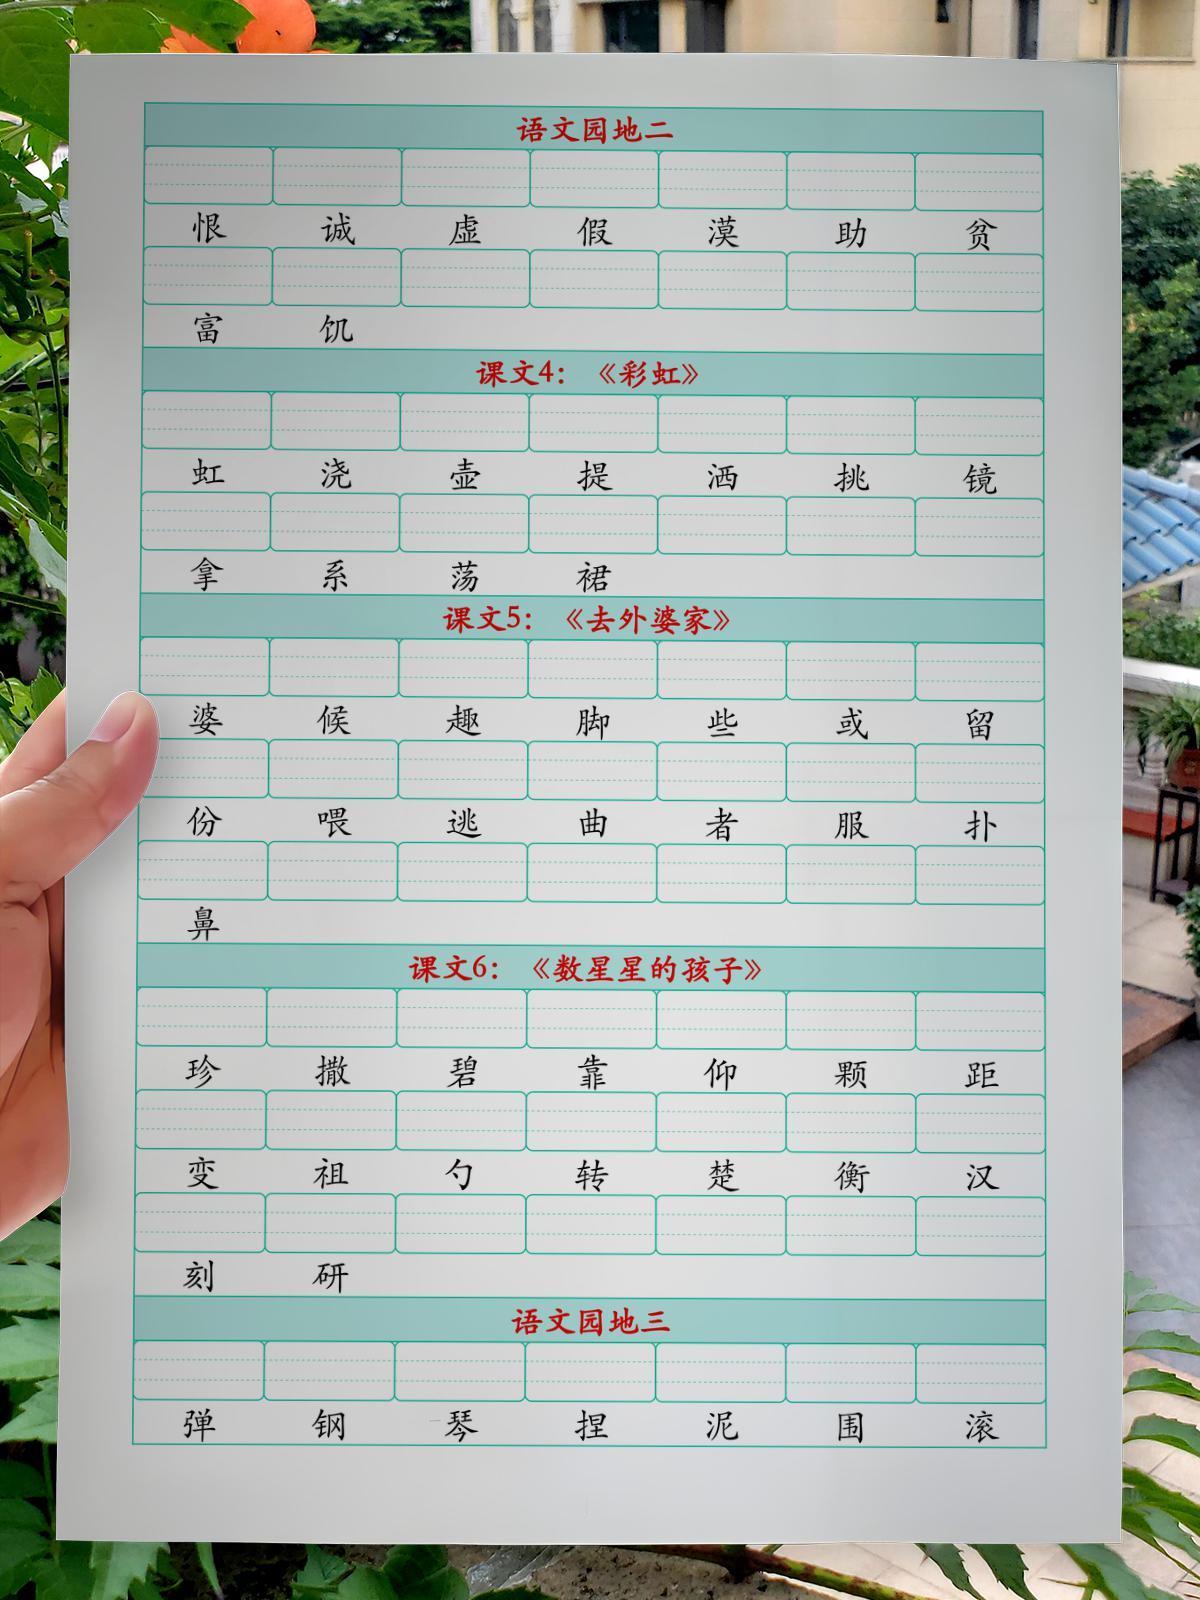 语文园地二
恨 诚 虚 假 漠 助 贫
富 饥
课文4：《彩虹》
虹 浇 壶 提 洒 挑 镜
拿 系 荡 裙
课文5：《去外婆家》
婆 候 趣 脚 些 或 留
份 喂 逃 曲 者 服 扑
鼻
课文6：《数星星的孩子》
珍 撒 碧 靠 仰 颗 距
变 祖 勺 转 楚 衡 汉
刻 研
语文园地三
弹 钢 琴 捏 泥 围 滚